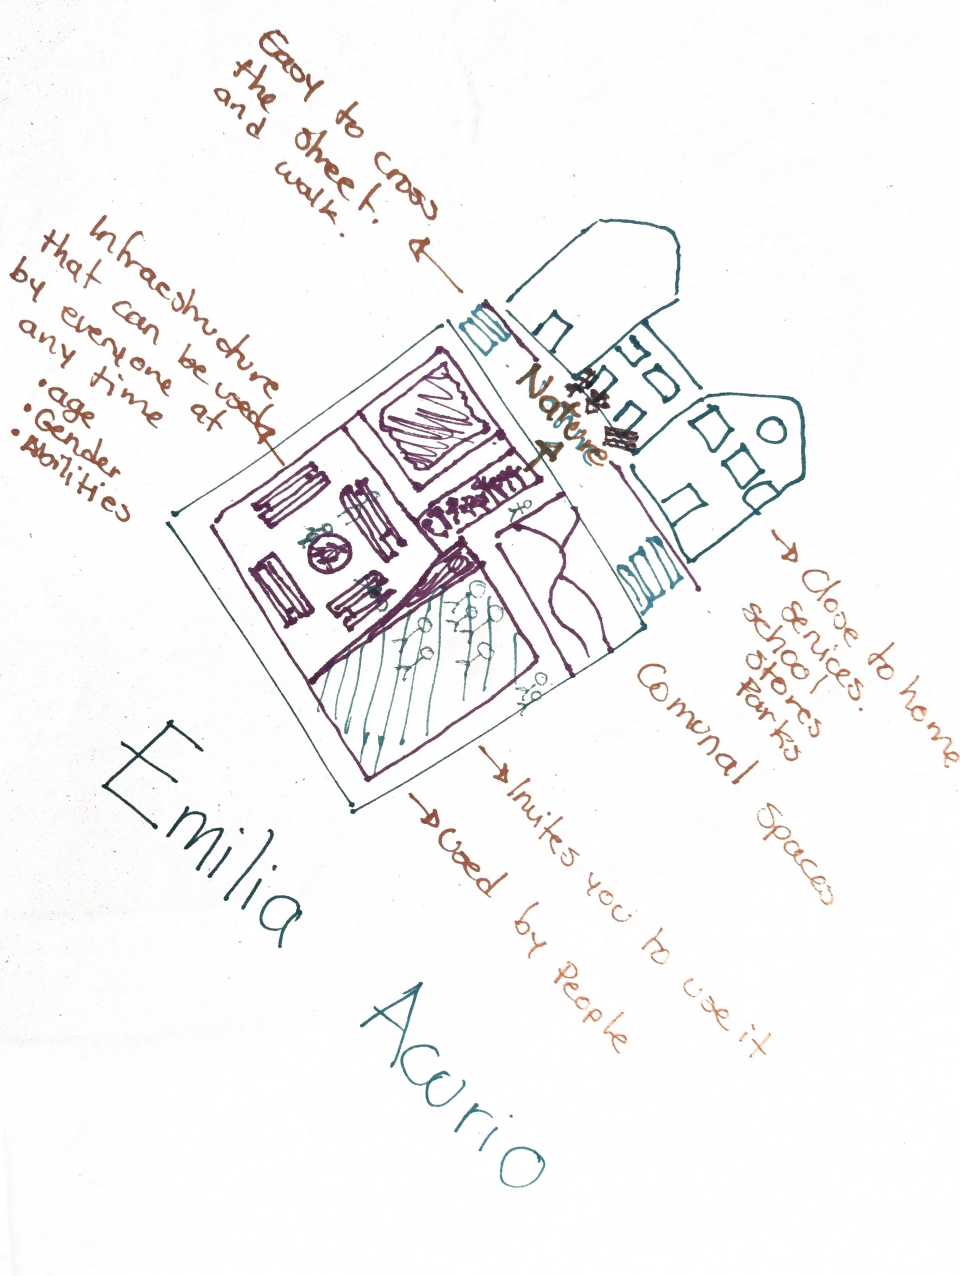 Easy to cross
the street.
and walk.
Infracstructure
that can be used
by everyone at
any time
• age
• Gender
• Abilities
Nature
Close to home
Services.
school
Stores
Parks
Comunal Spaces
Invites you to use it
Used by People
Emilia
Acurio